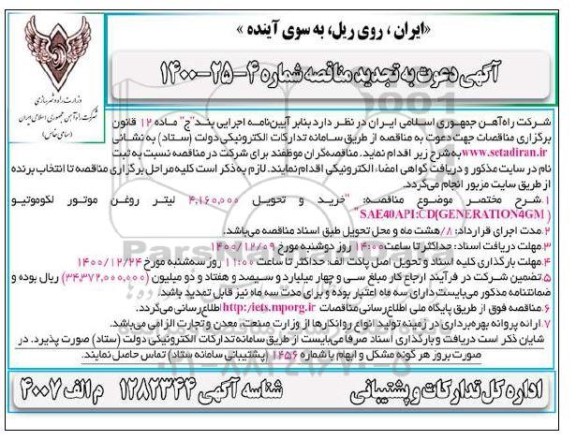 «ایران ، روی ریل، به سوی آینده »
آگهی دعوت به تجدید مناقصه شماره ۴-۲۵-۱۴۰۰
وزارت راه و شهرسازی
شرکت راه‌آهن جمهوری اسلامی ایران
(سهامی خاص)
شرکت راه‌آهن جمهوری اسلامی ایران در نظر دارد بنابر آیین‌نامه اجرایی بند"ج" ماده ۱۲ قانون
برگزاری مناقصات جهت دعوت به مناقصه از طریق سامانه تدارکات الکترونیکی دولت (ستاد) به نشانی
www.setadiran.ir به شرح زیر اقدام نماید. مناقصه‌گران موظفند برای شرکت در مناقصه نسبت به ثبت
نام در سایت مذکور و دریافت گواهی امضاء الکترونیکی اقدام نمایند. لازم به ذکر است کلیه مراحل برگزاری مناقصه تا انتخاب برنده
از طریق سایت مزبور انجام می‌گردد.
۱.شرح مختصر موضوع مناقصه: "خرید و تحویل ۴,۱۶۰,۰۰۰ لیتر روغن موتور لکوموتیو
( SAE40API:CD(GENERATION4GM "
۲.مدت اجرای قرارداد: ۸/هشت ماه و محل تحویل طبق اسناد مناقصه می‌باشد.
۳.مهلت دریافت اسناد: حداکثر تا ساعت ۱۴:۰۰ روز دوشنبه مورخ ۱۴۰۰/۱۲/۰۹
۴.مهلت بارگذاری کلیه اسناد و تحویل اصل پاکت الف: حداکثر تا ساعت ۱۱:۰۰ روز سه‌شنبه مورخ ۱۴۰۰/۱۲/۲۴
۵.تضمین شرکت در فرآیند ارجاع کار مبلغ سی و چهار میلیارد و سیصد و هفتاد و دو میلیون (۳۴,۳۷۲,۰۰۰,۰۰۰) ریال بوده و
ضمانتنامه مذکور می‌بایست دارای سه ماه اعتبار بوده و برای مدت سه ماه نیز قابل تمدید باشد.
۶.مناقصه فوق از طریق پایگاه ملی اطلاع‌رسانی مناقصات http:/iets.mporg.ir اطلاع‌رسانی می‌گردد.
۷.ارائه پروانه بهره‌برداری در زمینه تولید انواع روانکارها از وزارت صنعت، معدن و تجارت الزامی می‌باشد.
شایان ذکر است دریافت و بارگذاری اسناد صرفاً می‌بایست از طریق سامانه تدارکات الکترونیکی دولت (ستاد) صورت پذیرد. در
صورت بروز هر گونه مشکل و ابهام با شماره ۱۴۵۶ (پشتیبانی سامانه ستاد) تماس حاصل نمایند.
اداره کل تدارکات و پشتیبانی شناسه آگهی ۱۲۸۲۳۴۴ م الف ۴۰۰۷